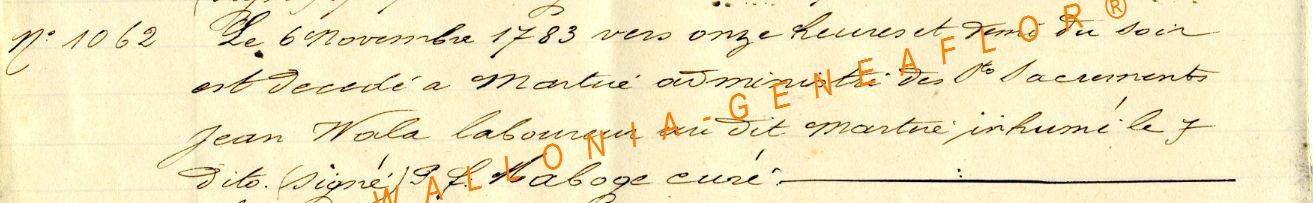 N° 1062 Le 6 Novembre 1783 vers onze heures et demi du soir
est decedé a Martué administré des Sts Sacrements
Jean Wala laboureur au dit Martué inhumé le 7
dito. (signé) P. J. Naboge curé.
WALLONIA-GENEAFLOR®